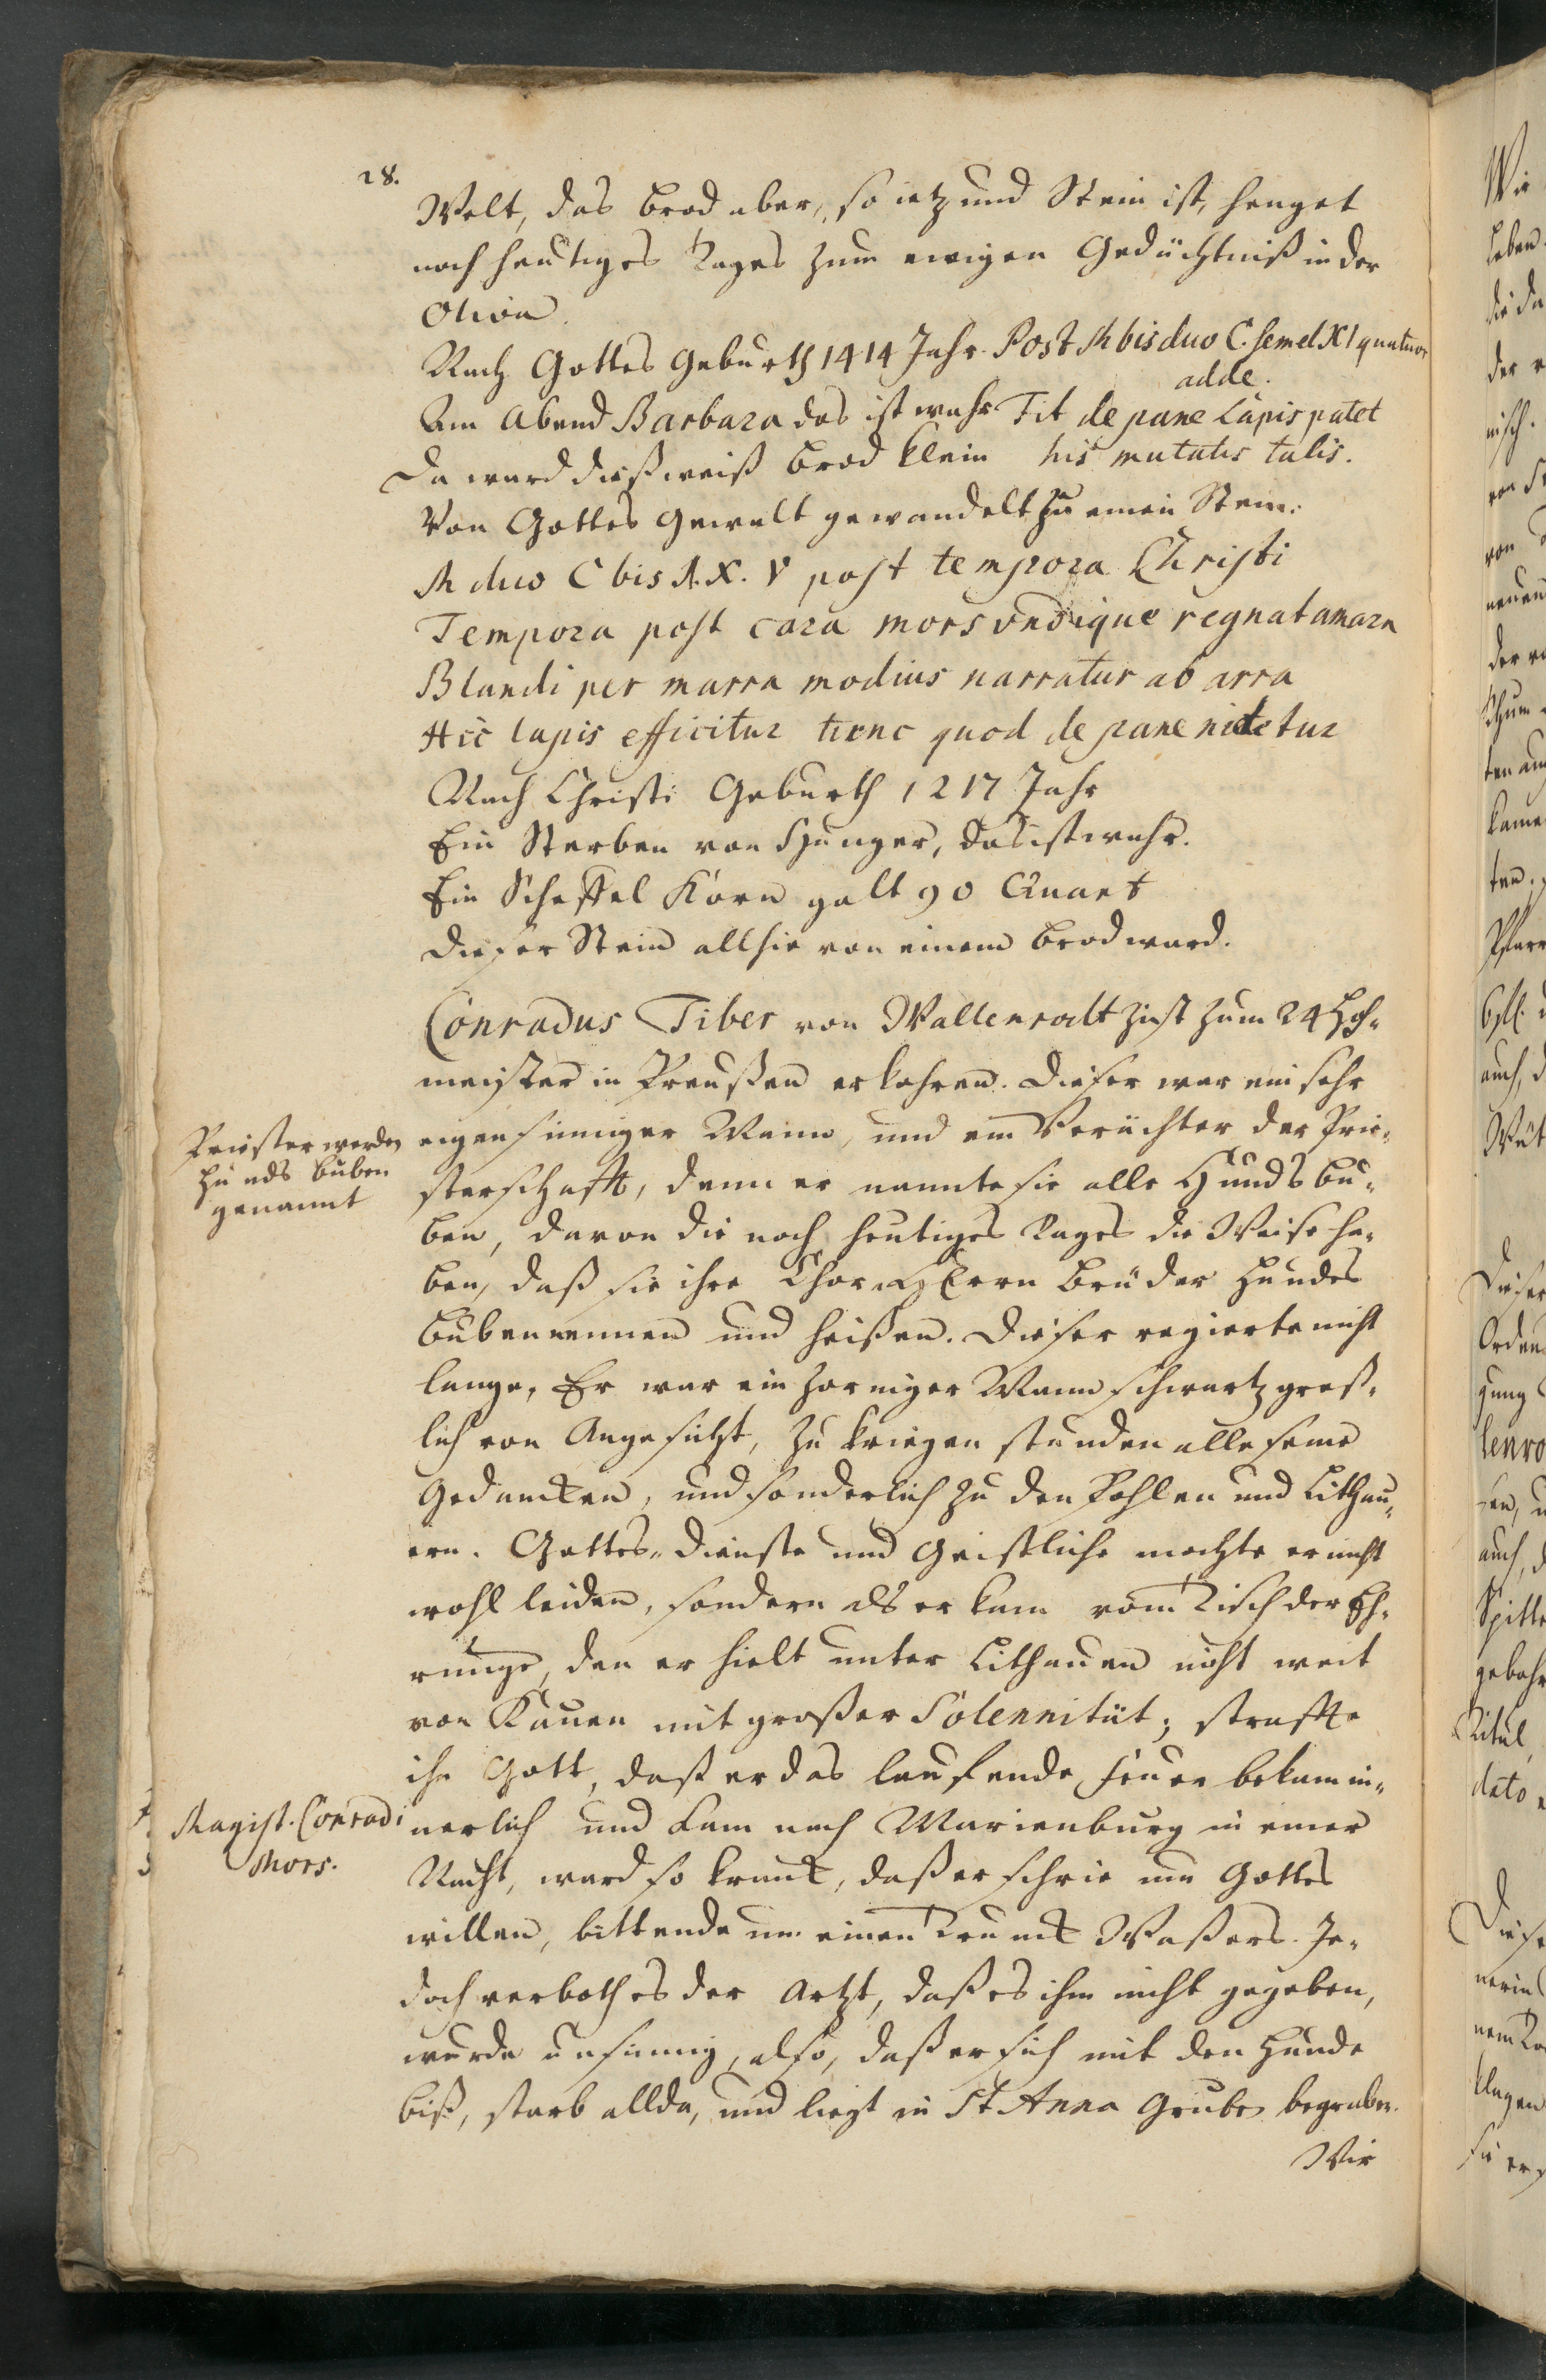 28.
Welt, das Brod aber, so ietzund Stein ist, henget
noch heutiges Tages zum ewigen Gedächtniß in der
Oliva.
Nach Gottes Geburth 1414 Jahr. Post M bis duo C. semel XI quatuor
adde.
Am Abend Barbara das ist wahr Fit de pane Lapis patet
Da ward dieß weiß Brod klein his mutatis talis.
Von Gottes Gewalt gewandelt zu einen Stein.
M duo C bis A. X. V post tempora Christi
Tempora post cara mors vndique regnat amara
Blandi per marra modius narratur ab arra
Hic lapis efficitur tunc quod de pane videtur
Nach Christi Geburth 1217 Jahr
Ein Sterben von Hunger, das ist wahr.
Ein Scheffel Korn galt 90 Quart
Dieser Stein allhie von einem Brod ward.
Conradus Tiber von Wallenrodt ist zum 24 Hoh-
meister in Preußen erkohren. Dieser war ein sehr
Priester werden
Hunds Buben
genannt
eigensinniger Mann, und ein Verächter der Prie-
sterschafft, denn er nannte sie alle Hundsbu-
ben, davon die noch heutiges Tages die Weise ha-
ben, daß sie ihre Chor Herrn Brüder Hundes
Buben nennen und heißen. Dieser regierte nicht
lange, Er war ein zorniger Mann schwartz greß-
lich von Angesicht, zu kriegen stunden alle seine
Gedancken, und sonderlich zu den Pohlen und Lithau-
ern. Gottes-Dienste und Geistliche mochte er nicht
wohl leiden, sondern als er kam vom Tisch der Eh-
runge, den er hielt unter Lithauen nicht weit
von Kauen mit großer Solennität, straffte
ihn Gott, daß er das lauffende Feuer bekam in-
Magist. Conradi
Mors.
nerlich und kam nach Marienburg in einer
Nacht, ward so kranck, daß er schrie um Gottes
willen, bittende um einen Trunck Waßers. Je-
doch verboth es der Artzt, daß es ihm nicht gegeben,
wurde unsinnig, also, daß er sich mit den Hunde
biß, starb allda, und liegt in St Anna Grube begraben.
Wir